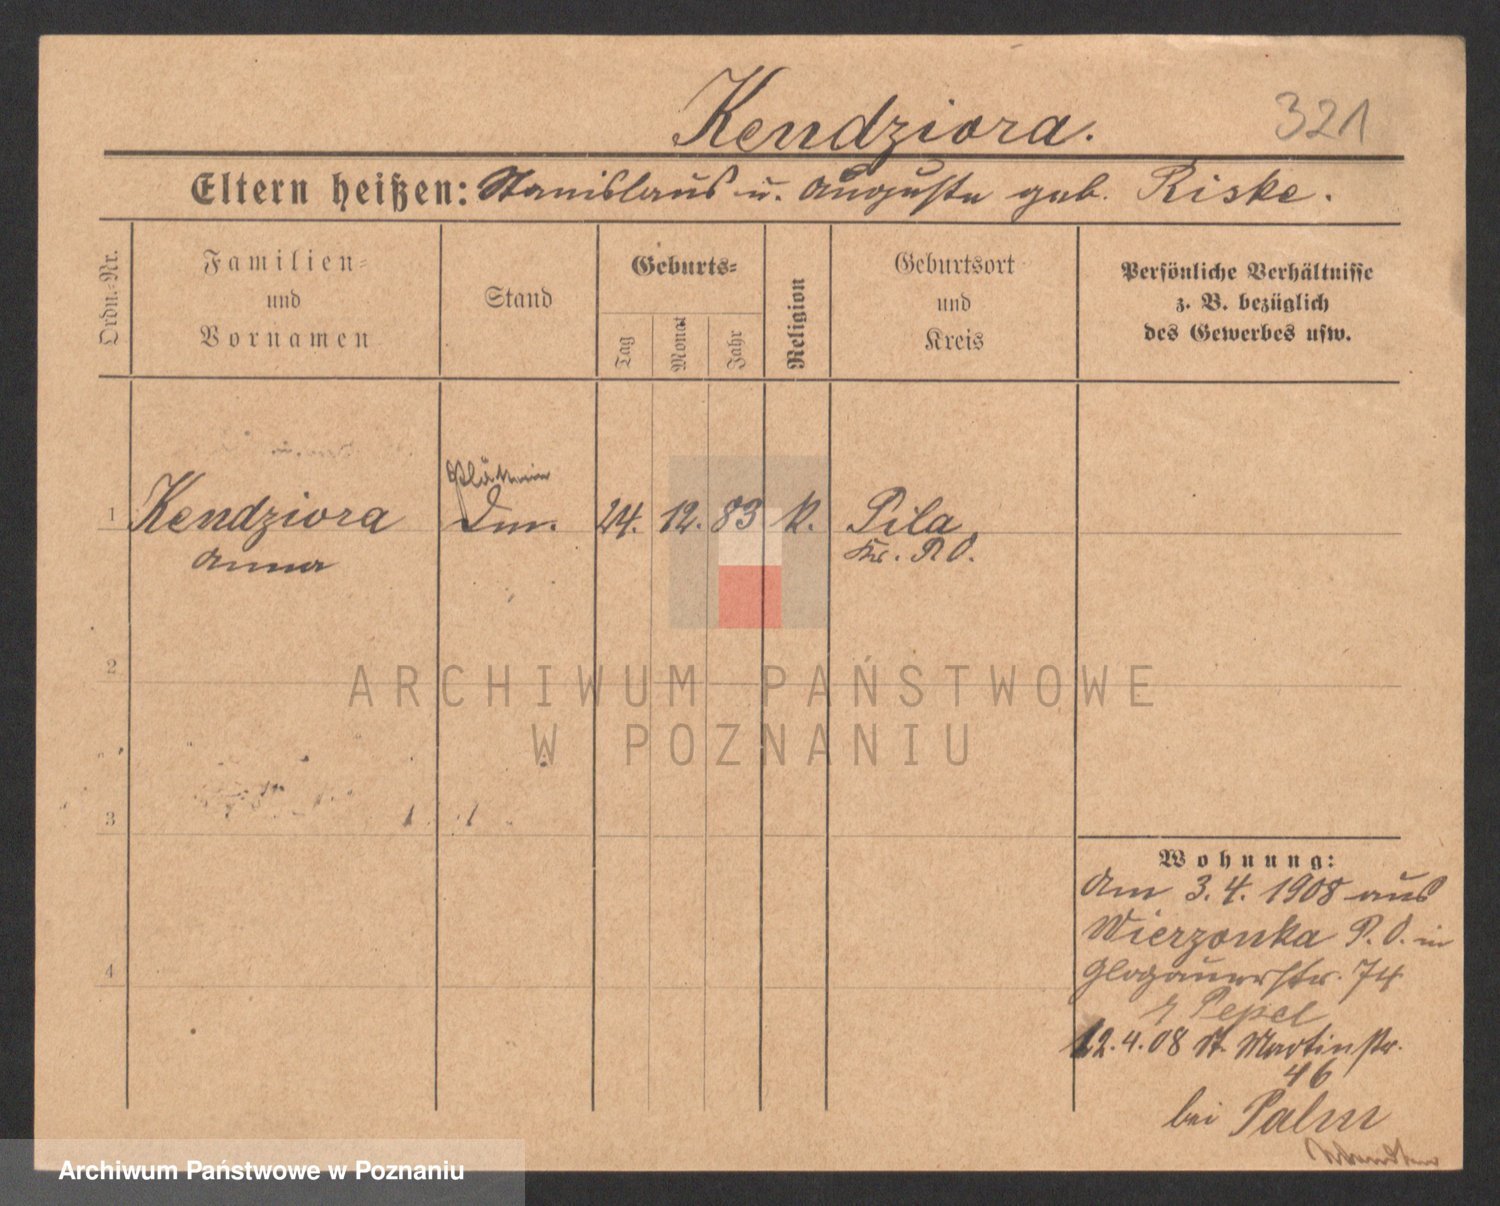 Kendziora.
321
Eltern heißen: Stanislaus u. Auguste geb. Riske.
Ordn.-Nr.
Familien-
und
Vornamen
Stand
Geburts-
Tag
Monat
Jahr
Religion
Geburtsort
und
Kreis
Persönliche Verhältnisse
z. B. bezüglich
des Gewerbes usw.
Plätterin
1 Kendziora 24. 12. 83 k. Pila
Anna Kr. P. O.
2
ARCHIWUM PAŃSTWOWE
W POZNANIU
3
Wohnung:
Am 3. 4. 1908 aus
Wierzonka P. O. in
4
Glogauerstr. 74
Pepel
12. 4. 08 St. Martinstr.
46
bei Palm
Archiwum Państwowe w Poznaniu